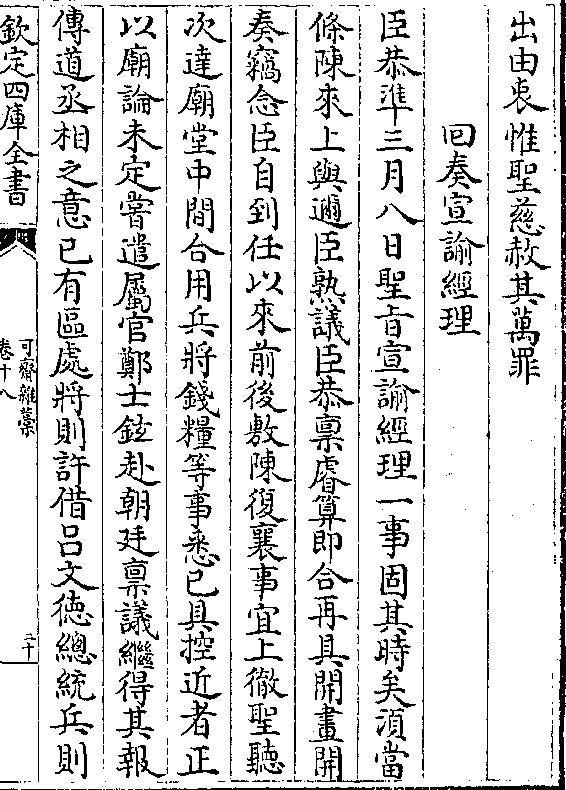 出由衷惟聖慈赦其萬罪
回奏宣諭經理
臣恭準三月八日聖旨宣諭經理一事固其時矣湏當
條陳來上與遞臣熟議臣恭禀睿算即合再具開畫開
奏竊念臣自到任以來前後敷陳復襄事宜上徹聖聽
次達廟堂中間合用兵將錢糧等事悉已具控近者正
以廟論未定嘗遣屬官鄭士鉉赴朝廷禀議繼得其報
傳道丞相之意已有區處將則許借吕文徳總統兵則
欽定四庫全書
可齋雜藁
卷十八
二十